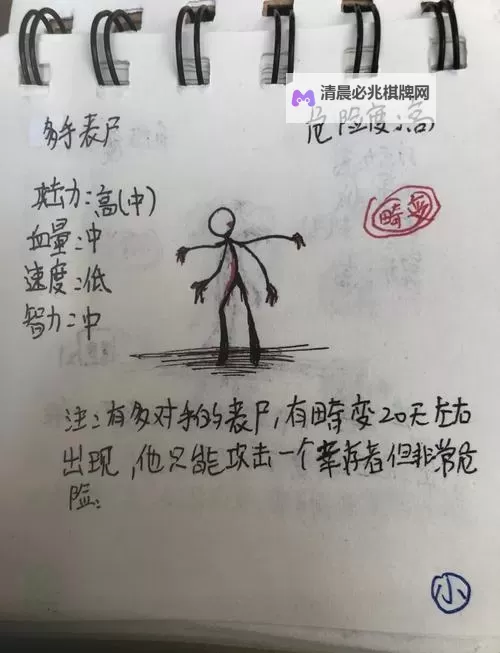 清晨必兆棋牌网
多手丧尸
危险度:高
攻击力:高(中)
畸变
血量:中
速度:低
智力:中
注:有多对手的丧尸,有畸变20天左右
出现,他只能攻击一个幸存者但非常危
险。
小